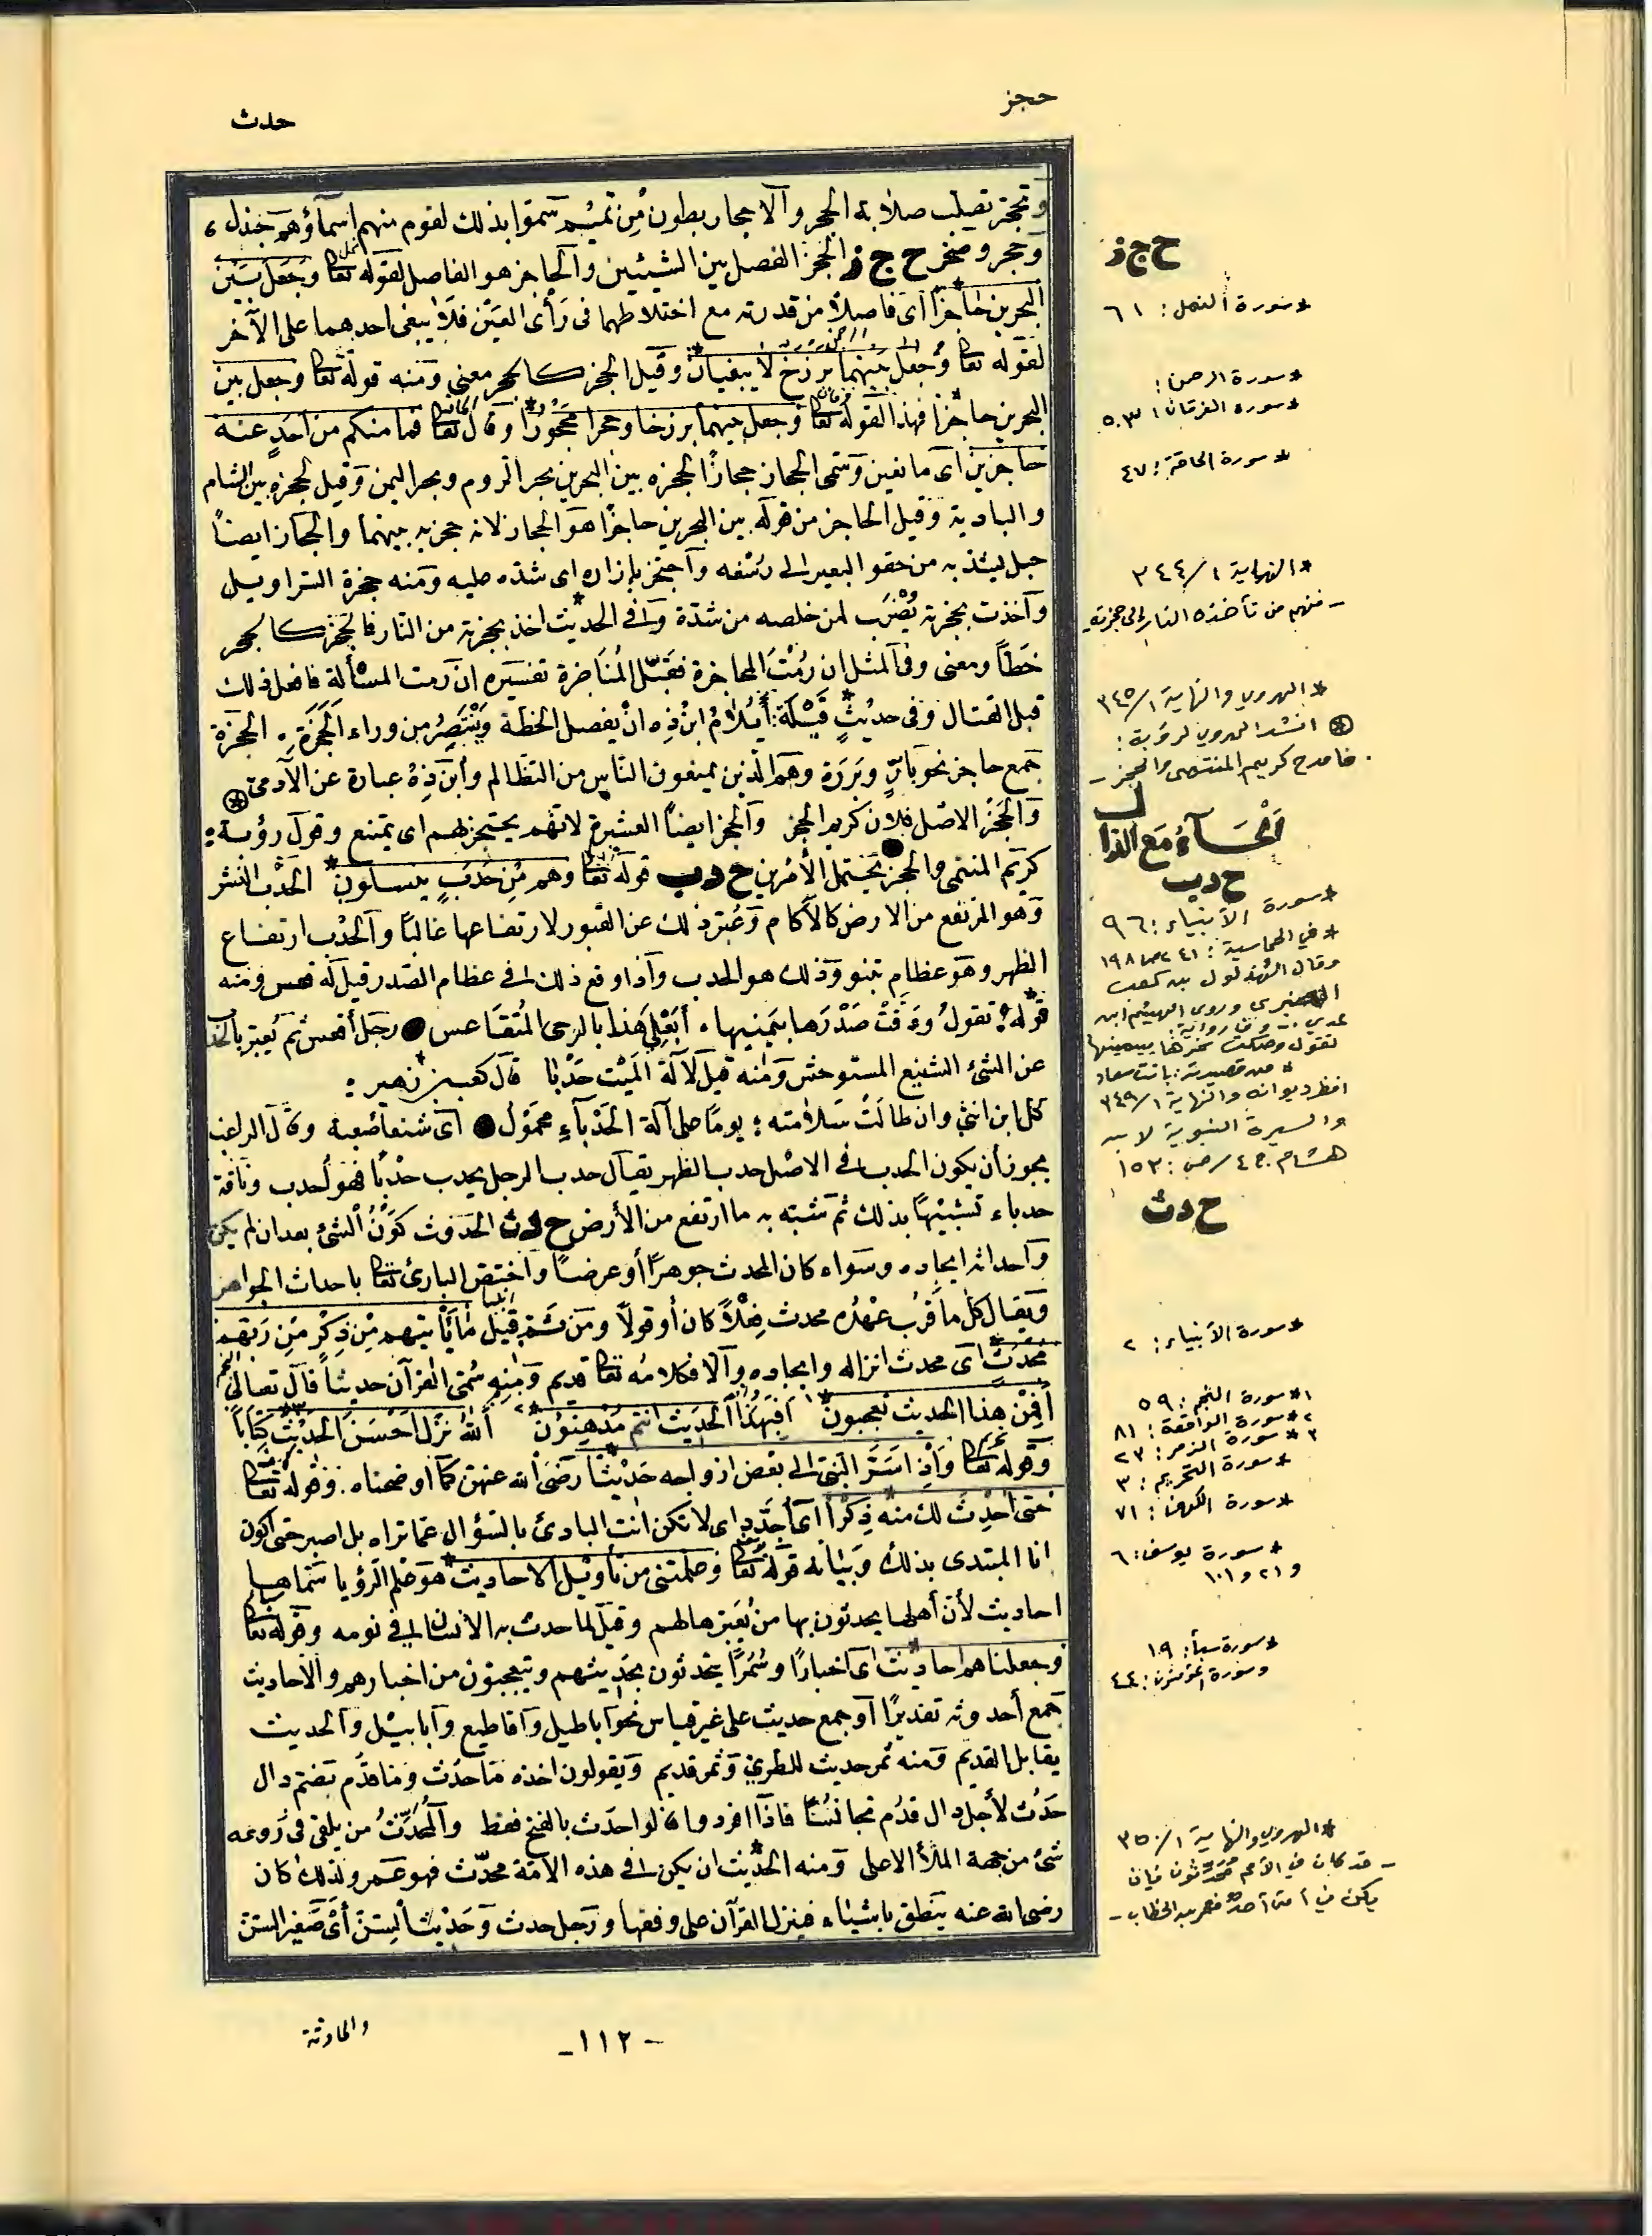 حجز
حدث
وتحجر تصلب صلابة الحجر والأحجار بطون من تميم سموا بذلك لقوم منهم أسماؤهم جندل،
وحجر وصخر ح ج ز الحجز الفصل بين الشيئين والحاجز هو الفاصل لقوله تعالى وجعل بين
البحرين حاجزا أى فاصلا من قدرته مع اختلاطهما فى رأى العين فلا يبغى احدهما على الآخر
لقوله تعالى وجعل بينهما برزخ لا يبغيان وقيل الحجز كالحجر معنى ومنه قوله تعالى وجعل بين
البحرين حاجزا فهذا لقوله تعالى وجعل بينهما برزخا وحجرا محجورا وقال تعالى فما منكم من احد عنه
حاجزين أى مانعين وسمى الحجاز حجازا لحجزه بين البحرين بحر الروم وبحر اليمن وقيل لحجزه بين الشام
والبادية وقيل الحاجز من قوله بين البحرين حاجزا هو الحجاز لانه حجز به بينهما والحجاز ايضا
حبل يشد به من حقو البعير الى رسغه واحتجز بازاره اى شده عليه ومنه حجزة السراويل
وأخذت بحجزته يضرب لمن خلصه من شدة وفى الحديث اخذ بحجزته من النار فالحجز كالحجر
خطا ومعنى وفى المثل ان رمت المحاجزة فقبل المناجزة تفسيره ان رمت المسألة فافعل ذلك
قبل القتال وفى حديث قيلة: أيلام ابن ذه ان يفصل الخطة وينتصر من وراء الحجزة. الحجزة
جمع حاجز نحو بار وبررة وهم الذين يمنعون الناس من التظالم وابن ذه عبارة عن الآدمى
والحجز الاصل فلان كريم الحجز والحجز ايضا العشيرة لانهم يحتجز بهم اى يمتنع وقول رؤبة:
كريم المنتمى والحجز يحتمل الأمرين ح د ب قوله تعالى وهم من حدب ينسلون الحدب النشز
وهو المرتفع من الارض كالآكام وعبر بذلك عن القبور لارتفاعها غالبا والحدب ارتفاع
الظهر وهو عظام تنبو وذلك هو الحدب واذا وقع ذلك فى عظام الصدر قيل له قعس ومنه
قوله: تقول ودقت صدرها بيمينها. أبعلى هذا بالرحى المتقاعس رجل أقعس ثم يعبر بالحدب
عن الشئ الشنيع المستوحش ومنه قيل لآلة الميت حدبا قال كعب بن زهير:
كل ابن انثى وان طالت سلامته: يوما على آلة الحدباء محمول أى شنعا صعبة وقال الراغب
يجوز أن يكون الحدب فى الاصل حدب الظهر يقال حدب الرجل يحدب حدبا فهو أحدب وناقة
حدباء تشبيها بذلك ثم شبه به ما ارتفع من الأرض ح د ث الحدوث كون الشئ بعد ان لم يكن
واحداثه ايجاده وسواء كان المحدث جوهرا أو عرضا واختص البارئ تعالى باحداث الجواهر
ويقال كل ما قرب عهده محدث فعلا كان أو قولا ومن ثم قيل ما يأتيهم من ذكر من ربهم
محدث أى محدث انزاله وايجاده والا فكلامه تعالى قديم ومنه سمى القرآن حديثا قال تعالى
أفمن هذا الحديث تعجبون أفبهذا الحديث انتم مدهنون الله نزل احسن الحديث كتابا
وقوله تعالى واذ اسر النبى الى بعض ازواجه حديثا رضى الله عنهن كما اوضحناه. وقوله تعالى
حتى احدث لك منه ذكرا أى أجدد اى لا تكن انت البادئ بالسؤال عما تراه بل اصبر حتى اكون
انا المبتدى بذلك وبيانه قوله تعالى وعلمتنى من تأويل الاحاديث هو علم الرؤيا سماها
احاديث لأن أهلها يحدثون بها من يعبرها لهم وقيل لما حدث به الانسان فى نومه وقوله تعالى
وجعلناهم احاديث اى اخبارا وسمرا يتحدثون بحديثهم ويتعجبون من اخبارهم والاحاديث
جمع أحدوثة تقديرا أو جمع حديث على غير قياس نحو اباطيل واقاطيع وأبابيل والحديث
يقابل القديم ومنه ثمر حديث للطرى وثمر قديم ويقولون اخذه ما حدث وما قدم بضم دال
حدث لأجل دال قدم تجانسا فاذا افرد وا قالوا حدث بالفتح فقط والمحدث من يلقى فى روعه
شئ من جهة الملأ الاعلى ومنه الحديث ان يكن فى هذه الامة محدث فهو عمر ولذلك كان
رضى الله عنه ينطق بأشياء فينزل القرآن على وفقها ورجل حدث وحديث السن أى صغير السن
ح ج ز
* سورة النمل: ٦١
* سورة الرحمن:
* سورة الفرقان: ٥٣
* سورة الحاقة: ٤٧
* النهاية ٣٤٤/١
- منهم من تأخذه النار إلى حجزته
* الهروي والنهاية ٣٤٥/١
انشد الهروي لرؤبة:
فامدح كريم المنتمى والحجز -
الحاء مع الدال
ح د ب
* سورة الأنبياء: ٩٦
* في الحماسية: ٢٤١
وقال الهذلول بن كعب
العنبرى
* من قصيدته: بانت سعاد
انظر ديوانه والنهاية ٣٤٩/١
والسيرة النبوية لابن
هشام ج ٤/ص: ١٥٣
ح د ث
* سورة الأنبياء: ٢
١* سورة النجم: ٥٩
٢* سورة الواقعة: ٨١
٣* سورة الزمر: ٢٣
* سورة التحريم: ٣
* سورة الكهف: ٧١
* سورة يوسف: ٦
و ٢١ و ١٠١
* سورة سبأ: ١٩
وسورة المؤمنون: ٤٤
* الهروي والنهاية ٣٥٠/١
- قد كان في الأمم محدثون فإن
يكن في أمتى أحد فعمر بن الخطاب -
والحادثة
- ١١٢ -